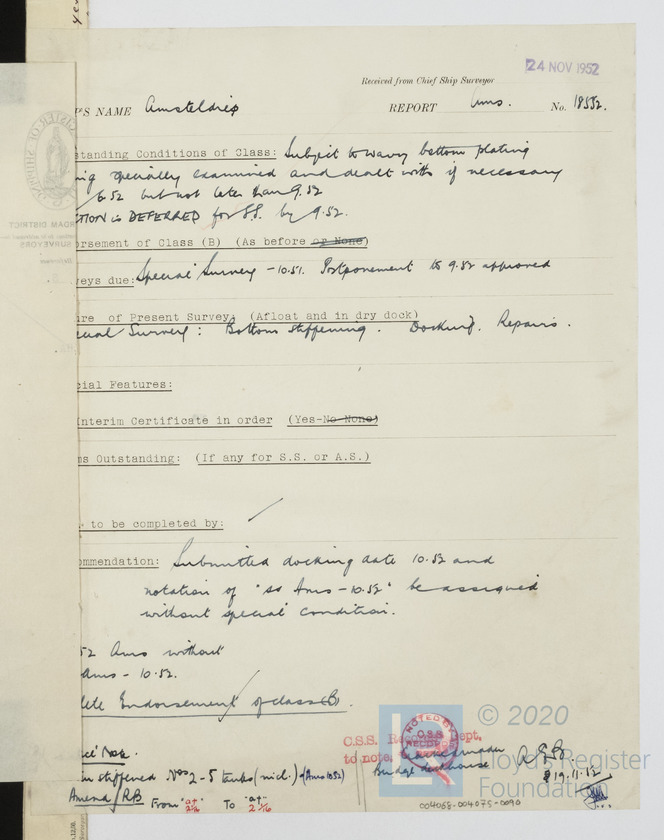 24 NOV 1952
Received from Chief Ship Surveyor
'S NAME Amsteldiep REPORT Ams. No. 18532.
standing Conditions of Class: Subject to wavy bottom plating
ing specially examined and dealt with if necessary
6.52 but not later than 9.52
TION is DEFERRED for SS. by 9.52.
orsement of Class (B) (As before or None)
veys due: Special Survey - 10.51. Postponement to 9.52 approved
ure of Present Survey: (Afloat and in dry dock)
ecial Survey: Bottom stiffening. Docking. Repairs.
cial Features:
Interim Certificate in order (Yes-No None)
ms Outstanding: (If any for S.S. or A.S.)
to be completed by:
ommendation: Submitted docking date 10.52 and
notation of "ss Ams - 10.52" be assigned
without special condition.
52 Ams without
Ams - 10.52.
lete Endorsement of class (B).
Note.
stiffened Nos 2-5 tanks (incl.) (Ams 10.52)
Amend RB From "at To "at
C.S.S. Dept,
to note,
NOTED BY
C.S.S.
Bridge deckhouse
19.11.52
© 2020
Lloyd's Register
Foundation
004068-004075-0090
DAM DISTRICT
SURVEYORS